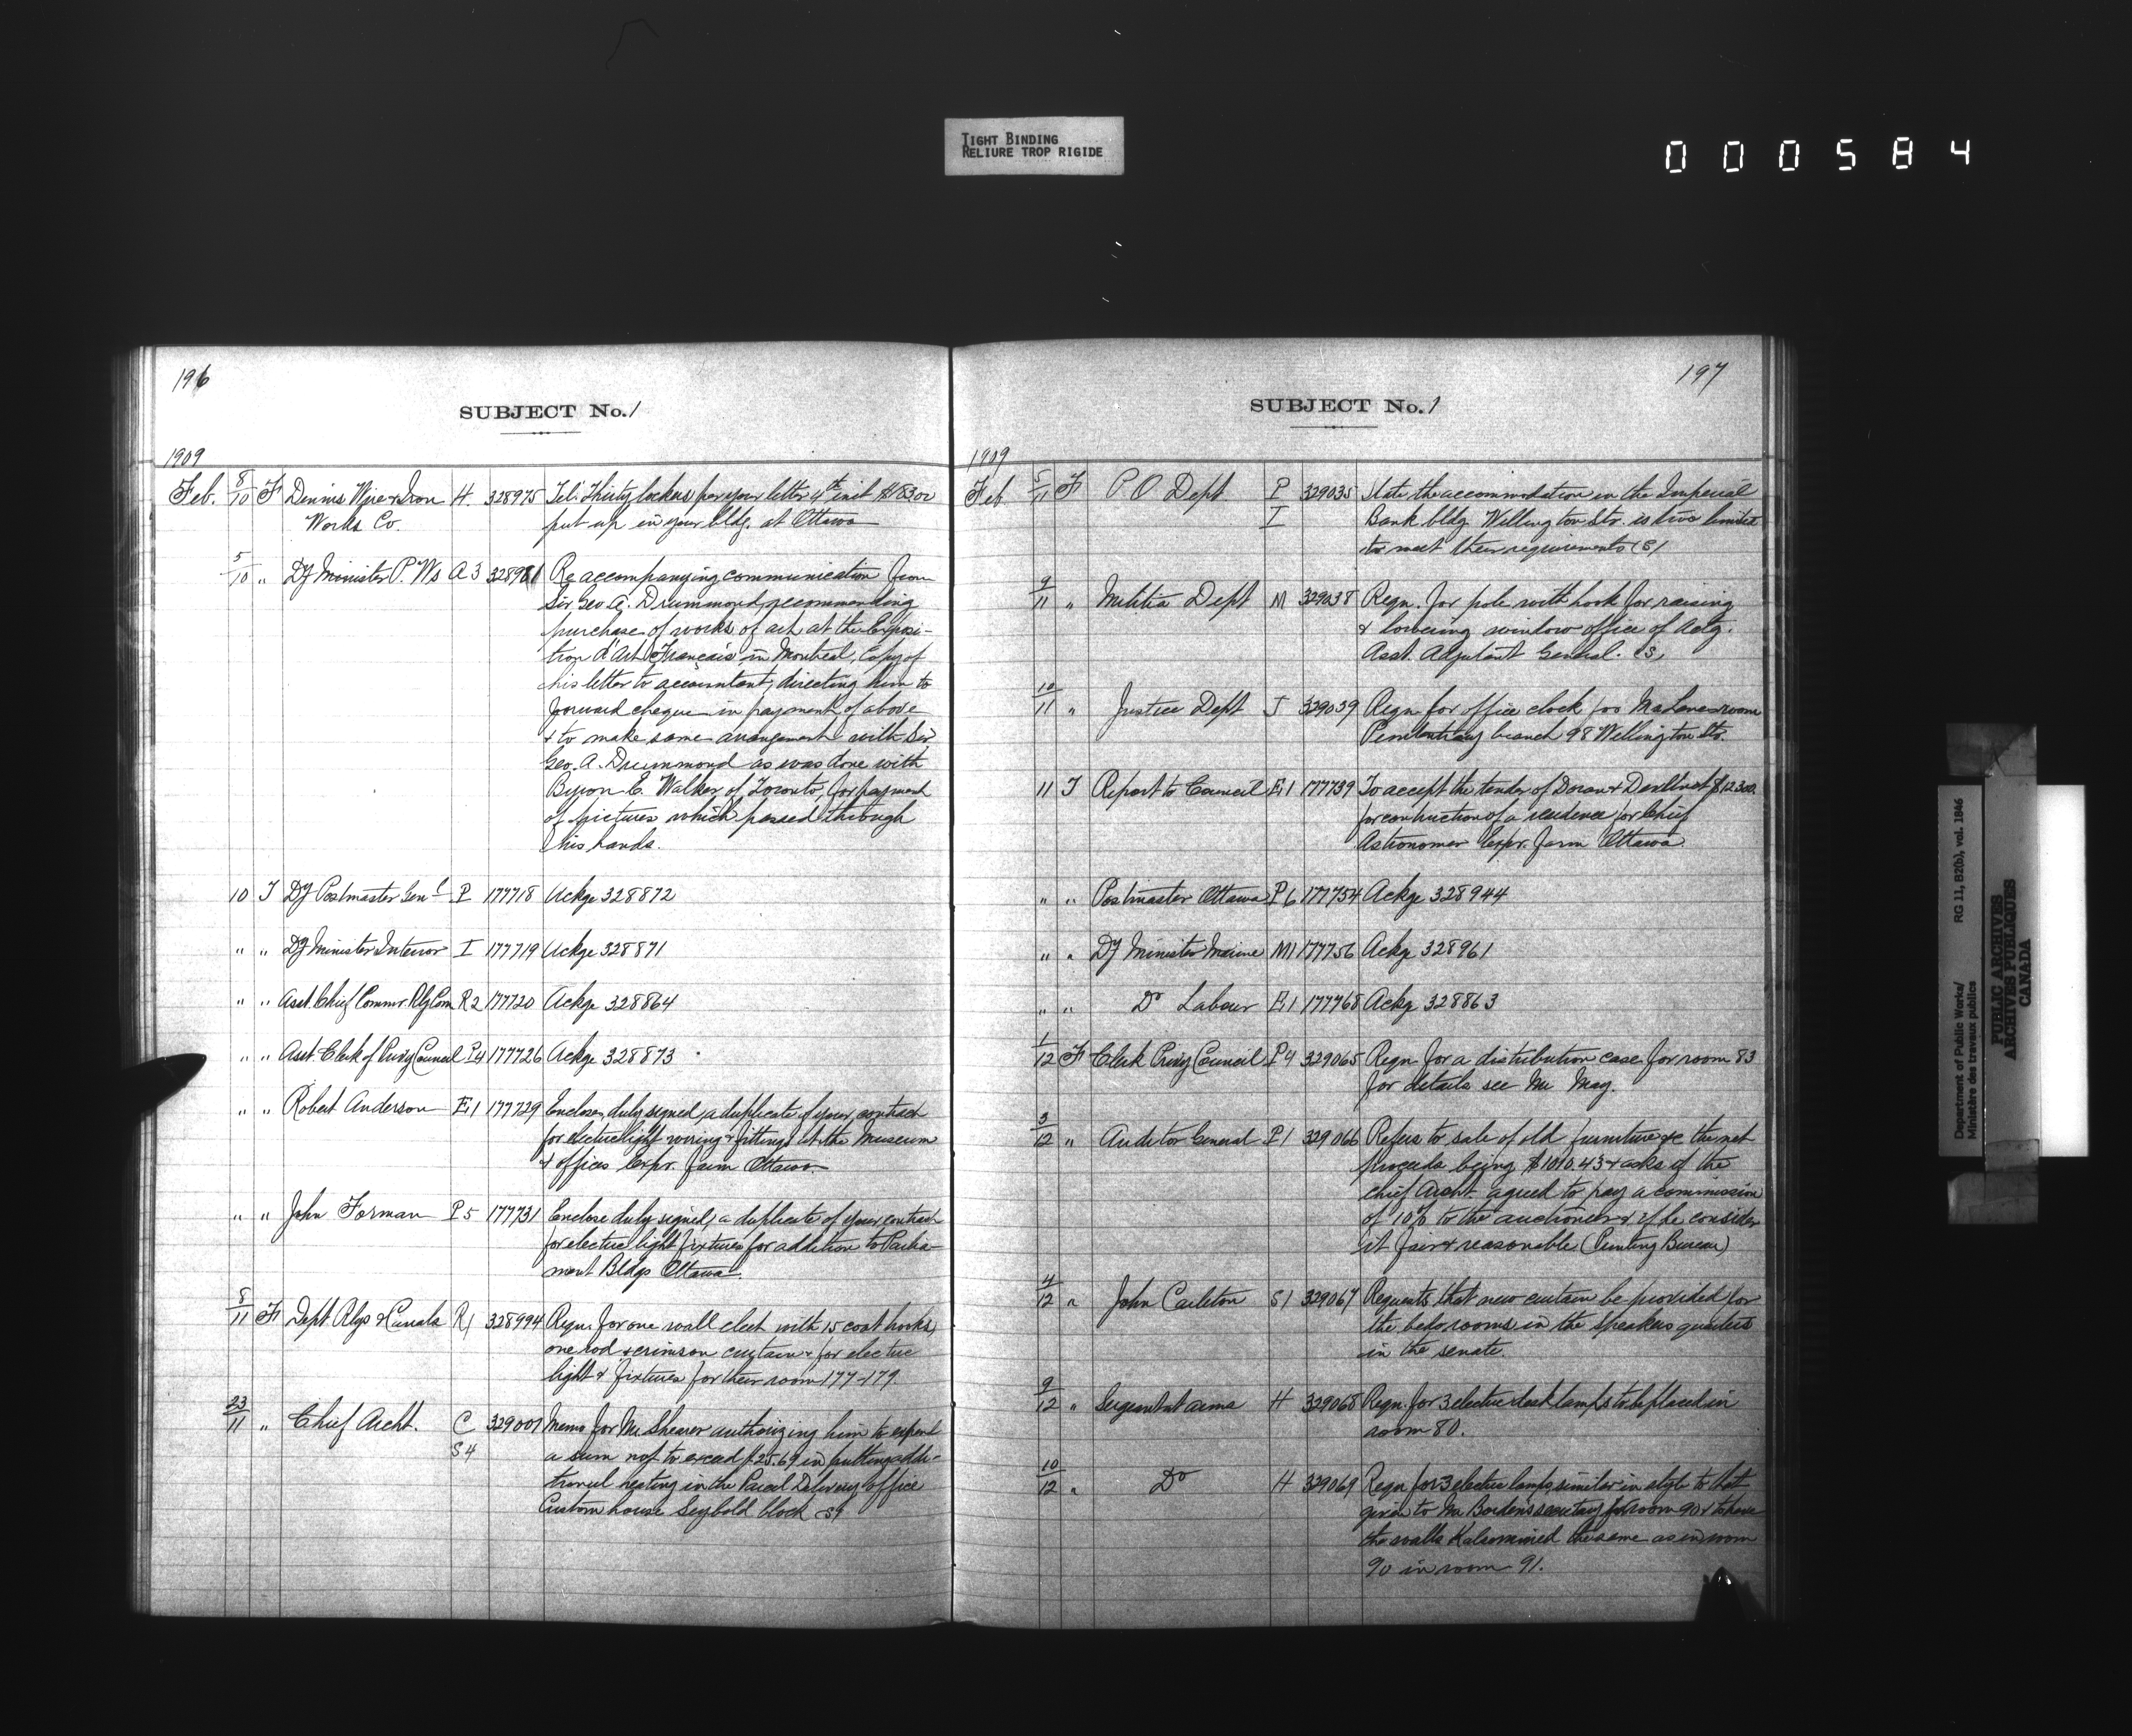 TIGHT BINDING
RELIURE TROP RIGIDE
000584
196
SUBJECT No. 1
1909
Feb. 8/10 F Dennis Wire & Iron H. 328975 Tel. Thirty lockers per your letter 4th inst
Works Co. put up in your bldg. at Ottawa
5/10 " Dy Minister P. Ws A3 328981 Re accompanying communication from
Sir Geo. A. Drummond, recommending
purchase of works of art at the Exposi-
tion d'Art Français in Montreal, Copy of
his letter to accountant, directing him to
forward cheque in payment of above
& to make same arrangement with Sir
Geo. A. Drummond as was done with
Byron E. Walker of Toronto, for payment
of pictures which passed through
his hands.
10 T Dy Postmaster Genl P 177718 Ackge 328872
" " Dy Minister Interior I 177719 Ackge 328871
" " Asst. Chief Commr. Rly Com R2 177720 Ackge 328864
" " Asst. Clerk of Privy Council P4 177726 Ackge 328873
" " Robert Anderson E1 177729 Enclose, duly signed, a duplicate of your contract
for electric light wiring & fittings at the Museum
& offices Expr. Farm Ottawa
" " John Forman P5 177731 Enclose duly signed, a duplicate of your contract
for electric light fixtures for addition to Parlia-
ment Bldgs Ottawa.
8/11 F Dept Rlys & Canals R1 328994 Reqn. for one wall cleat with 15 coat hooks,
one rod & crimson curtain & for electric
light & fixtures for their room 177-179
23/11 " Chief Archt. C 329007 Memo for Mr. Shearer authorizing him to expend
S4 a sum not to exceed $25.69 in putting addi-
tional heating in the Parcel Delivery office
Custom house Seybold block S4
197
SUBJECT No. 1
1909
Feb 5/11 F P O Dept P 329035 State the accommodation in the Imperial
I Bank bldg. Wellington Str. is too limited
to meet their requirements (S)
9/11 " Militia Dept M 329038 Reqn. for pole with hook for raising
& lowering window office of Actg.
Asst. Adjutant General. (S)
10/11 " Justice Dept J 329039 Reqn for office clock for room
Penitentiary branch 98 Wellington St.
11 T Report to Council E1 177739 To accept the tender of Doran & Devlin at $12300.
for contruction of a residence for Chief
Astronomer Expr. Farm Ottawa.
" " Postmaster Ottawa P6 177754 Ackge 328944
" " Dy Minister Marine M1 177756 Ackge 328961
" " Do Labour E1 177768 Ackge 328863
1/12 F Clerk Privy Council P4 329065 Reqn for a distribution case for room 83
for details see Mr May.
3/12 " Auditor General P1 329066 Refers to sale of old furniture &c the net
proceeds being $1010.43 & asks if the
Chief Archt. agreed to pay a commission
of 10% to the auctioneer & if he consider
it fair & reasonable (Printing Bureau)
4/12 " John Carleton S1 329067 Requests that new curtain be provided for
the bedrooms in the speakers quarters
in the senate.
9/12 " Sergeant at arms H 329068 Reqn. for 3 electric desk lamps to be placed in
room 80.
10/12 " Do H 329069 Reqn for 3 electric lamps, similar in style to that
given to Mr Borden's secretary for room 90 & to have
the walls Kalsomined the same as in room
90 in room 91.
Department of Public Works/ RG 11, B2(b), vol. 1846
Ministère des travaux publics
PUBLIC ARCHIVES
ARCHIVES PUBLIQUES
CANADA